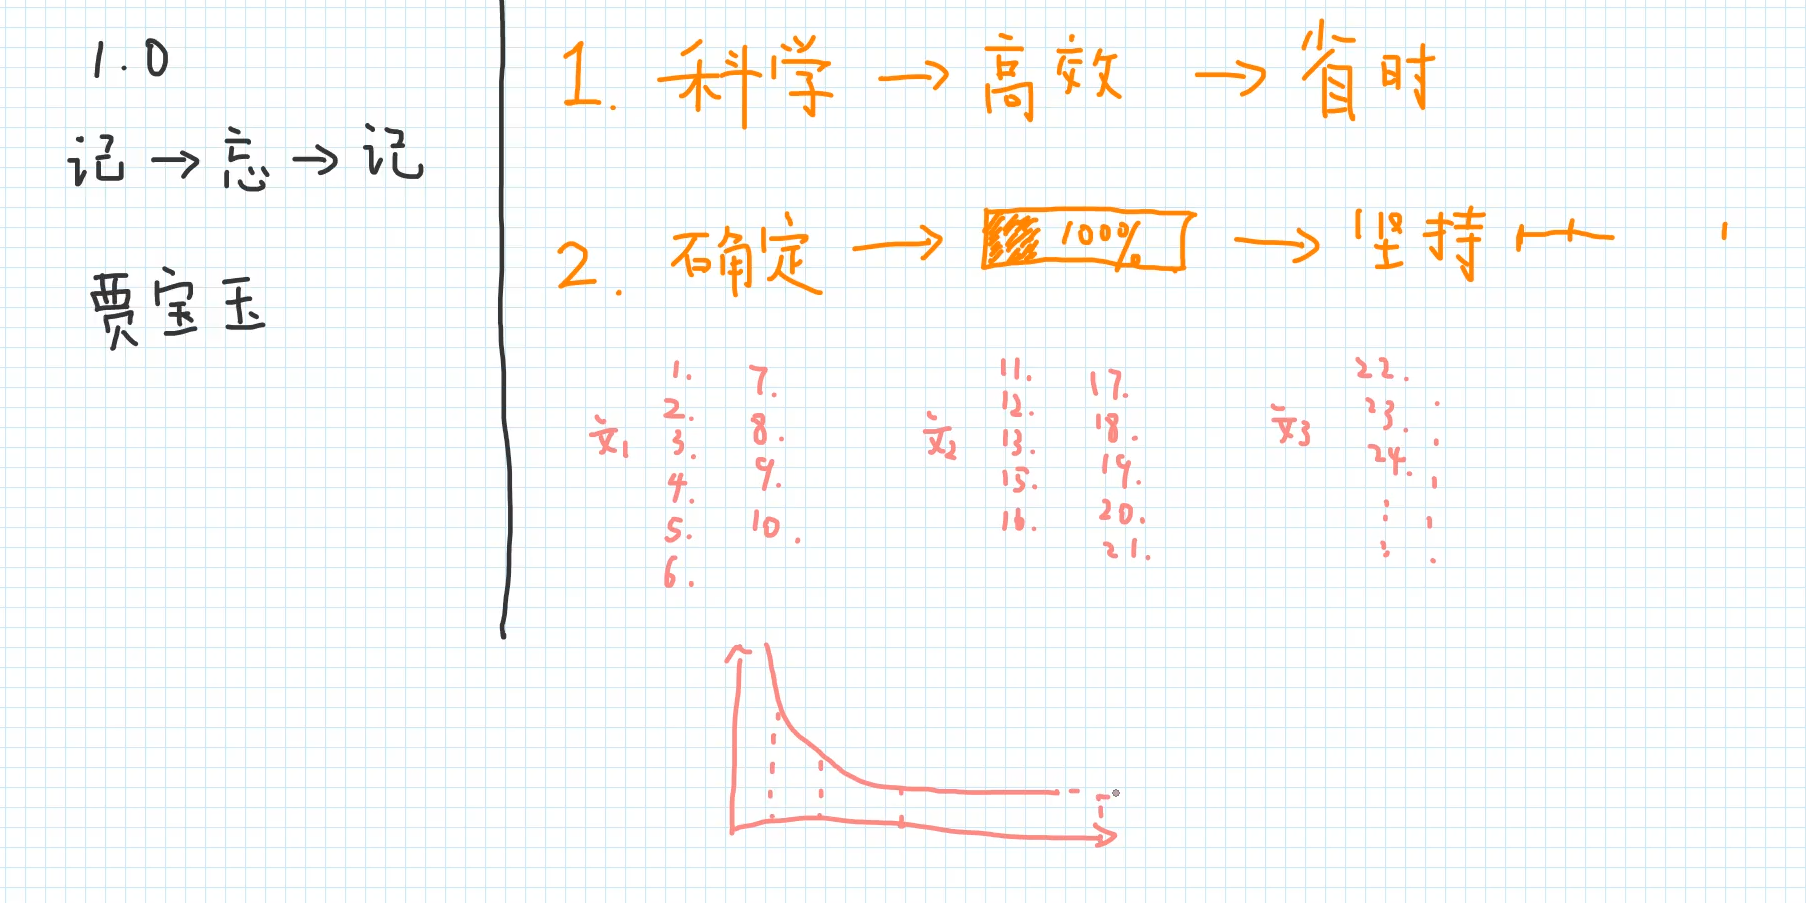 1.0
记→忘→记
贾宝玉
1. 科学→高效→省时
2. 确定→100%→坚持
文1
1.
2.
3.
4.
5.
6.
7.
8.
9.
10.
文2
11.
12.
13.
15.
16.
17.
18.
19.
20.
21.
文3
22.
23.
24.